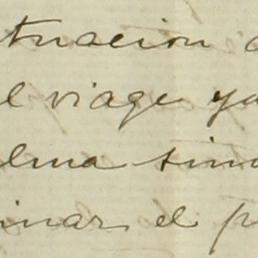 tuacion
el viage ya
lma sin
inar el p